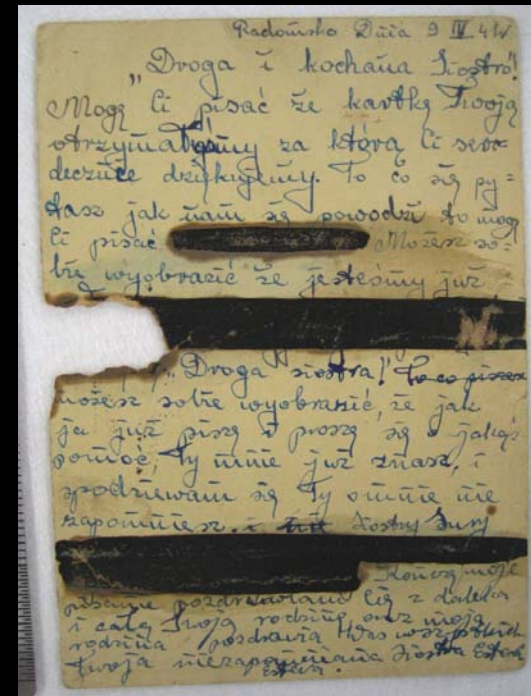 Radomsko Dnia 9 IV 41
"Droga i kochana Siostro!
Mogę Ci pisać że kartkę Twoją
otrzymałyśmy za którą Ci ser=
decznie dziękujemy. To co się py=
tasz jak nam się powodzi to mogę
Ci pisać Możesz so=
bie wyobrazić że jesteśmy już
"Droga siostra! To co piszesz
możesz sobie wyobrazić, że jak
ja już piszę i proszę się o jakąś
pomoc, Ty mnie już znasz, i
spodziewam się Ty o mnie nie
zapomniesz. i nie Siostry
Kończę moje
pisanie pozdrawiam Cię z daleka
i całą Twoją rodzinę oraz moja
rodzina pozdrawia Was wszystkich
Twoja niezapomniana Siostra Estera
Estera.